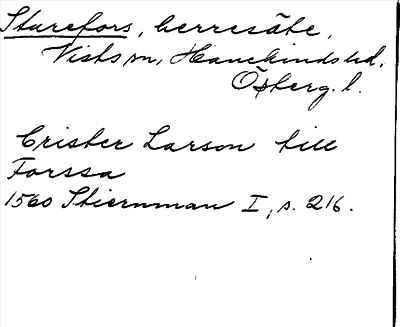 Sturefors, herresäte,
Vists sn, Hanekinds hd,
Österg. l.
Crister Larson till
Forssa
1560 Stiernman I, s. 216.